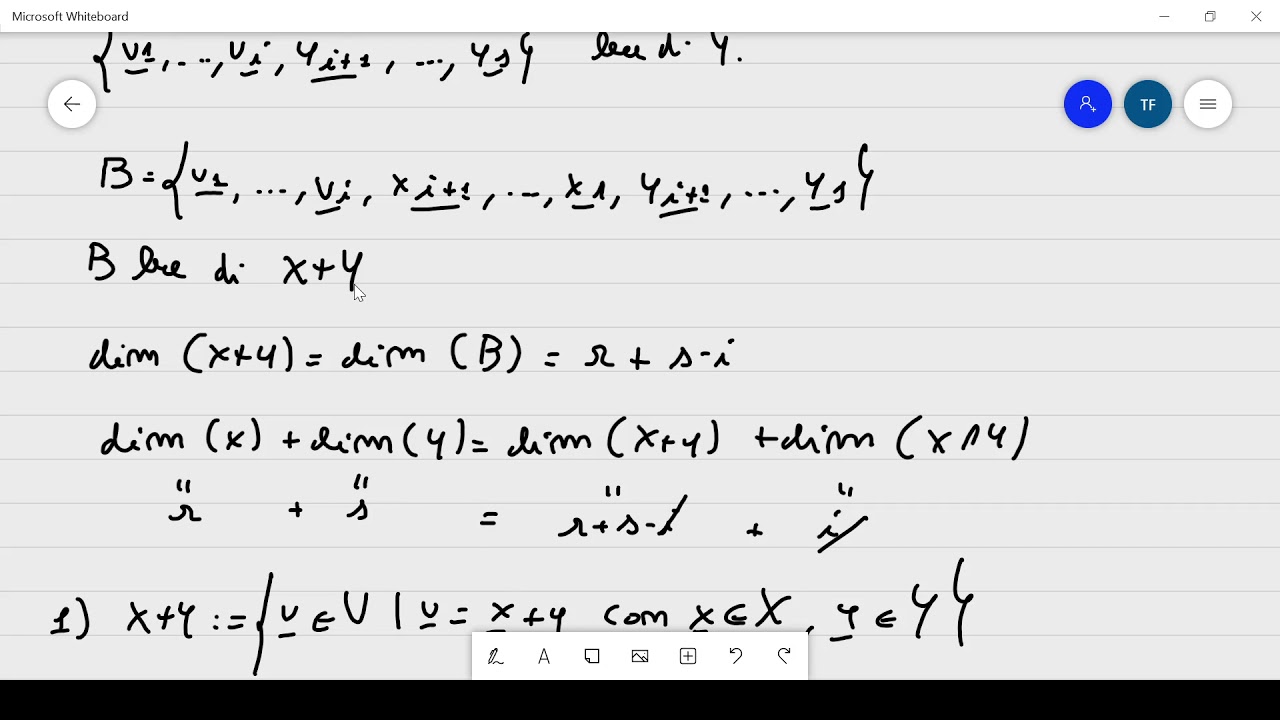 Microsoft Whiteboard
{v1, ..., vi, yi+1, ..., ys} base di Y.
TF
B = {v1, ..., vi, xi+1, ..., xr, yi+1, ..., ys}
B base di X+Y
dim (X+Y) = dim (B) = r + s-i
dim (X) + dim (Y) = dim (X+Y) + dim (X∩Y)
" " " "
r + s = r+s-i + i
1) X+Y := {v ∈ V | v = x+y con x ∈ X, y ∈ Y}